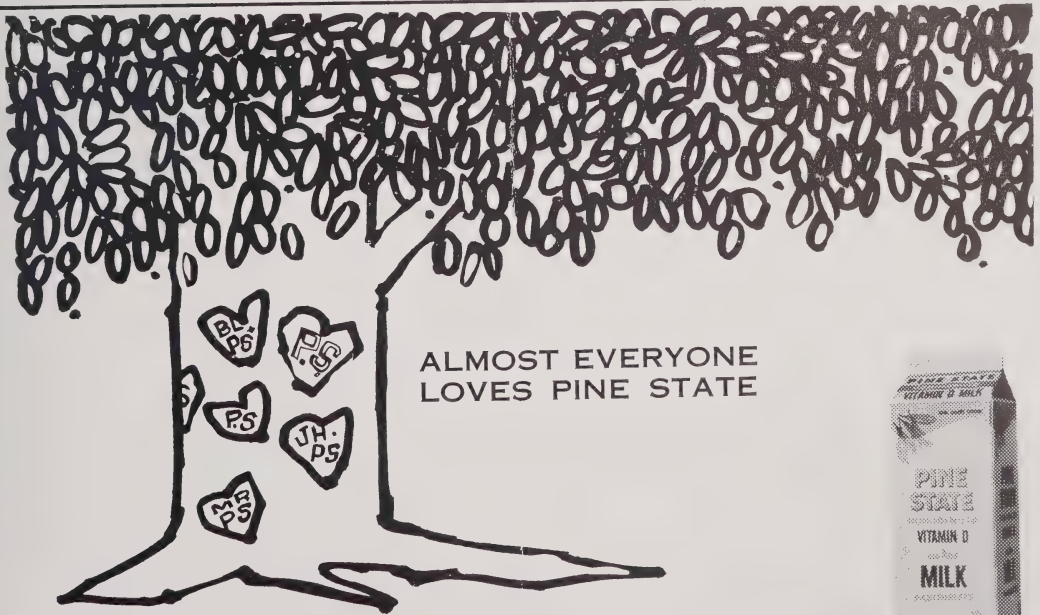 BL
PS
P.S.
S
P.S
JH.
PS
MR
PS
ALMOST EVERYONE
LOVES PINE STATE
PINE STATE
VITAMIN D MILK
PINE
STATE
VITAMIN D
MILK